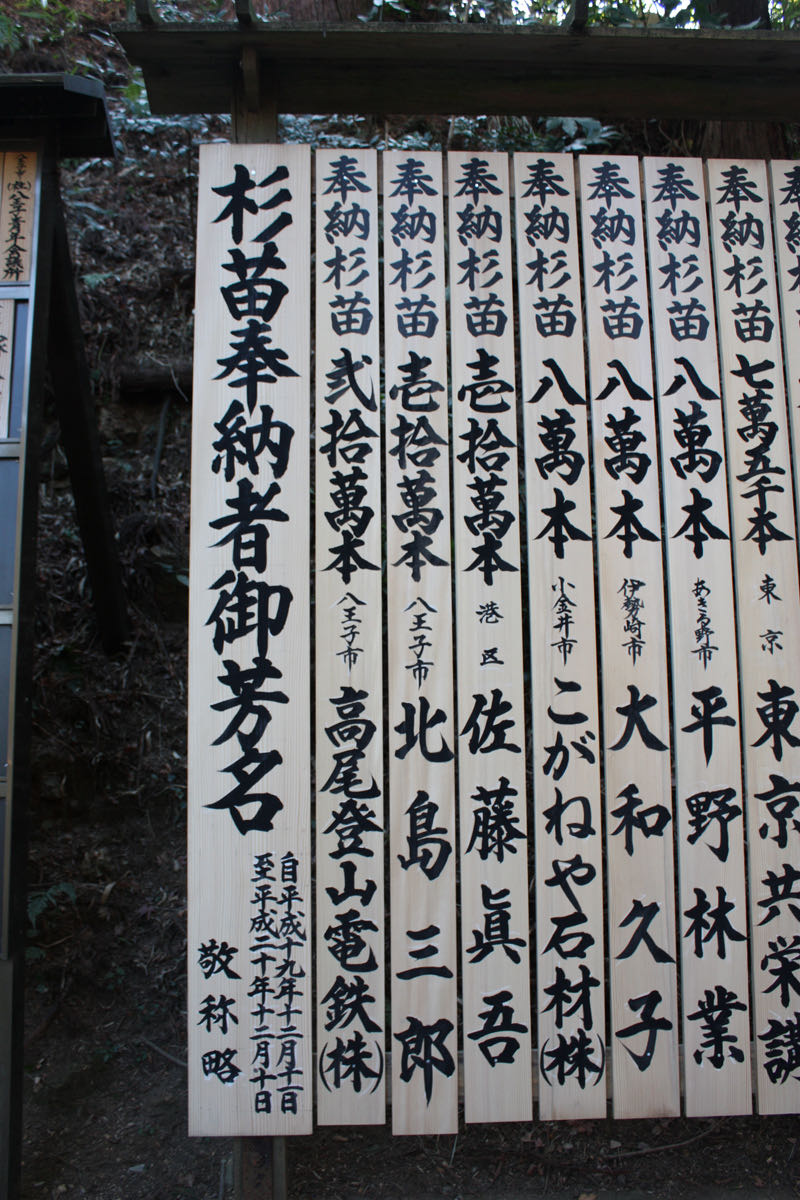 杉苗奉納者御芳名
自平成十九年十二月十一日
至平成二十年十二月十日
敬称略
奉納杉苗 弐拾萬本 八王子市 高尾登山電鉄(株)
奉納杉苗 壱拾萬本 八王子市 北島三郎
奉納杉苗 壱拾萬本 港区 佐藤眞吾
奉納杉苗 八萬本 小金井市 こがねや石材(株)
奉納杉苗 八萬本 伊勢崎市 大和久子
奉納杉苗 八萬本 あきる野市 平野林業
奉納杉苗 七萬五千本 東京 東京共栄講
奉納